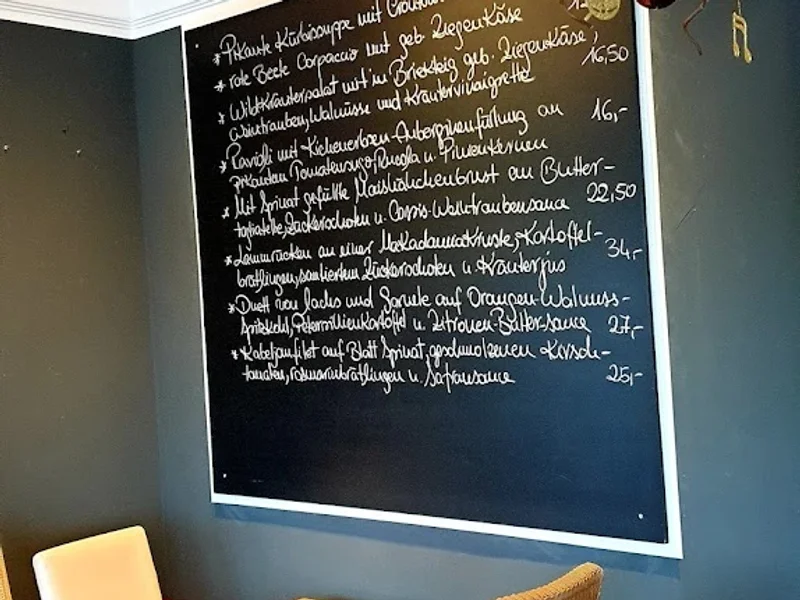 * Pikante Kürbissuppe mit
* rote Beete Carpaccio mit geb Ziegenkäse
* Wildkräutersalat mit in Brickteig geb. Ziegenkäse, 16,50
Weintrauben, Walnüsse und Kräutervinaigrette
* Ravioli mit Kichererbsen-Auberginenfüllung an 16,-
pikantem Tomatensugo, Rucola u. Pinienkernen
* Mit Spinat gefüllte Maishähnchenbrust an Butter-
tagliatelle, Zuckerschoten u. Cassis-Weintraubensauce 22,50
* Lammrücken an einer Makadamiakruste, Kartoffel-
brätlingen, sautiertem Zuckerschoten u. Kräuterjus 34,-
* Duett von Lachs und Garnele auf Orangen-Walnuss-
Spitzkohl, Petersilienkartoffel u. Zitronen-Butter-sauce 27,-
* Kabeljaufilet auf Blatt Spinat, geschmolzenen Kirsch-
tomaten, rosmarinbrätlingen u. Safransauce 25,-